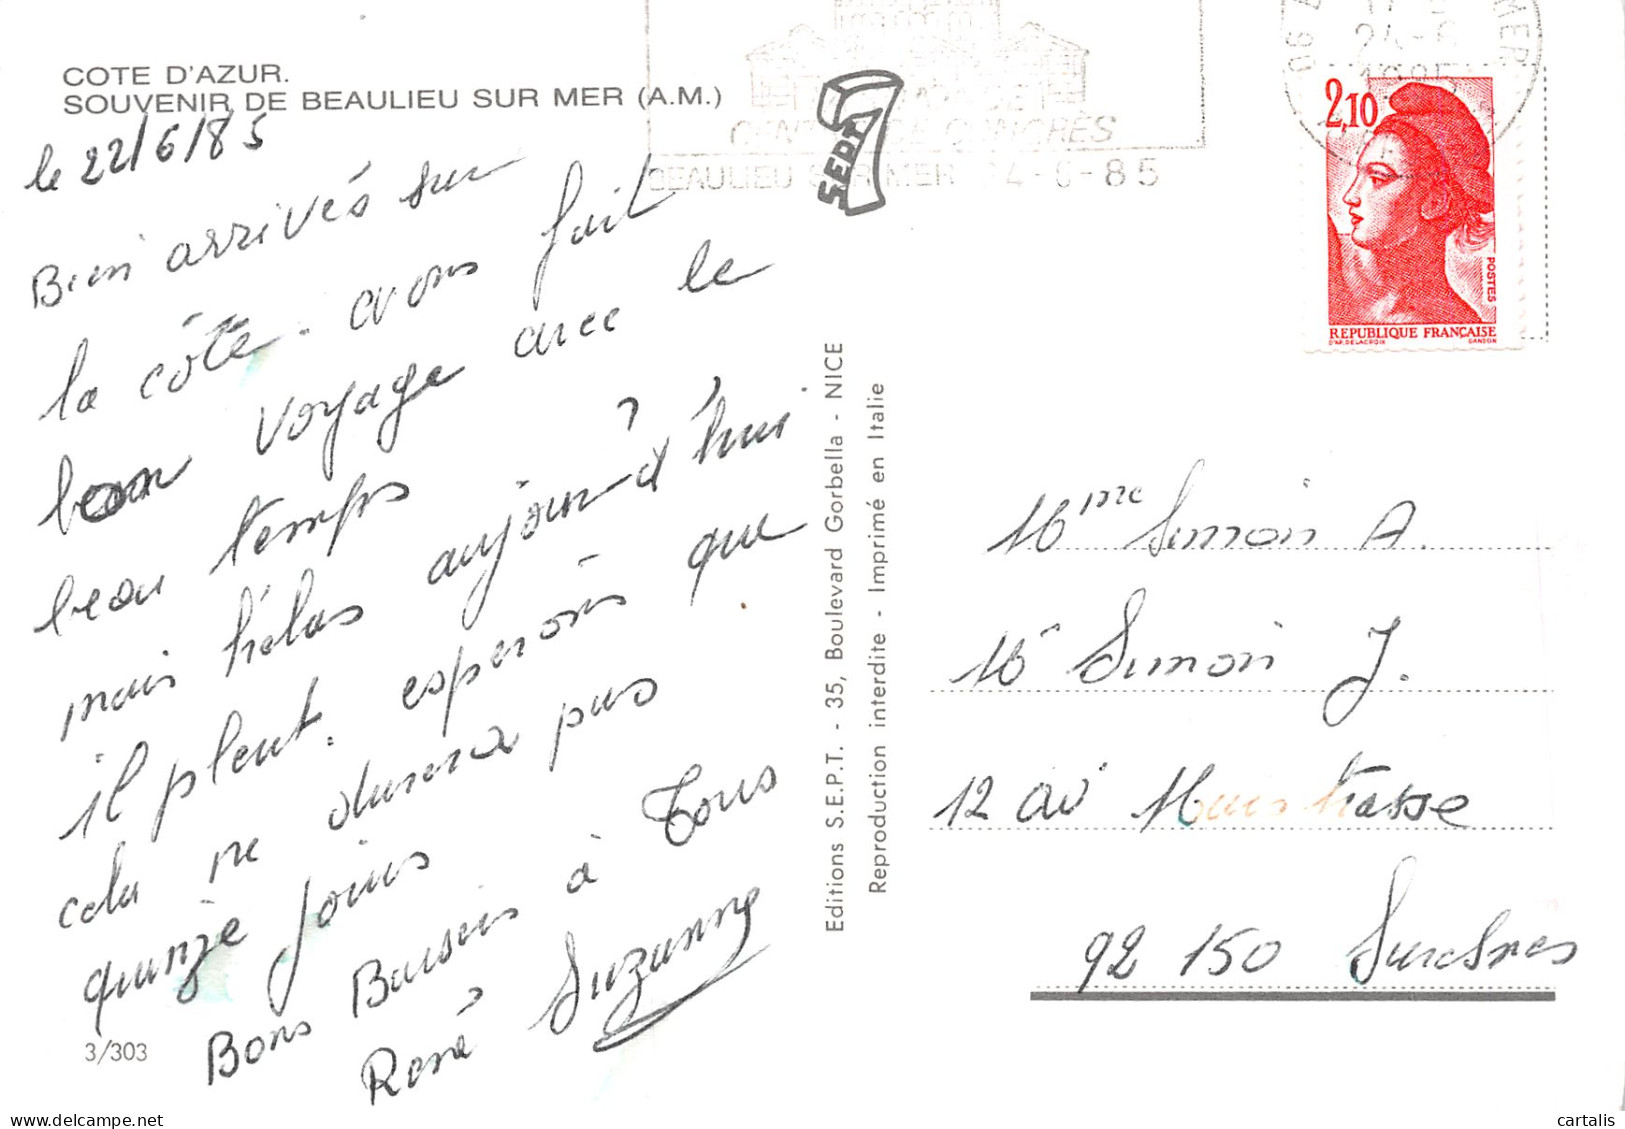 COTE D'AZUR.
SOUVENIR DE BEAULIEU SUR MER (A.M.)
le 22/6/85
Bien arrivés sur
la côte. avons fait
bon voyage avec le
beau temps
mais hélas aujour-d'hui
il pleut. esperons que
cela ne durera pas
quinze jours
Bons Baisers à Tous
René Suzanne
3/303
SEPT
Editions S.E.P.T. - 35, Boulevard Gorbella - NICE
Reproduction interdite - Imprimé en Italie
CONGRÈS
BEAULIEU SUR MER 24-6-85
MER
24-6
2,10
POSTES
REPUBLIQUE FRANÇAISE
D'AP. DELACROIX GANDON
Mme Simon A.
Mr Simon J.
12 av
92 150 Suresnes
cartalis